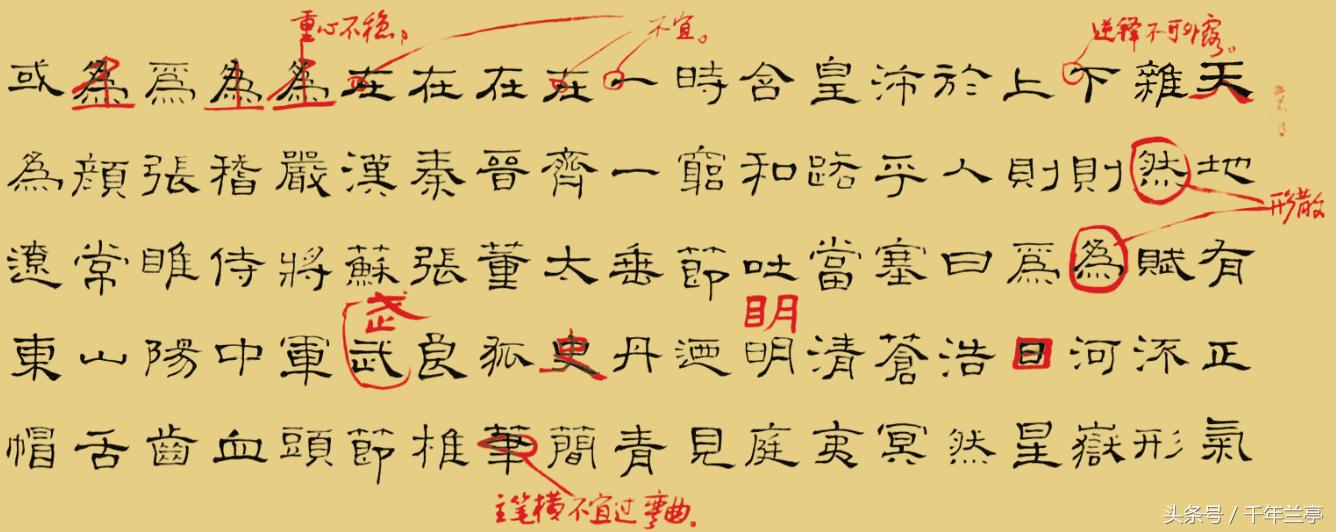 天地有正氣
雜然賦流形
下則為河嶽
上則爲日星
於人曰浩然
沛乎塞蒼冥
皇路當清夷
含和吐明庭
時窮節迺見
一一垂丹青
在齊太史簡
在晉董狐筆
在秦張良椎
在漢蘇武節
為嚴將軍頭
為稽侍中血
爲張睢陽齒
為顏常山舌
或為遼東帽
逆锋不可外露。
不宜。
重心不稳。
形散
明
武
主笔横不宜过弯曲。
头条号 / 千年兰亭